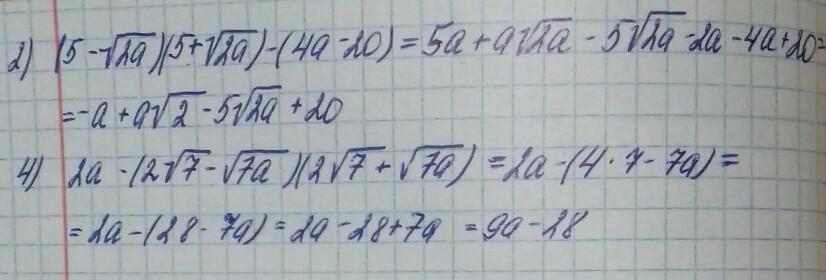 2) (5-√2a)(5+√2a)-(4a-20)=5a+a√2a-5√2a-2a-4a+20=
=-a+a√2-5√2a+20
4) 2a-(2√7-√7a)(2√7+√7a)=2a-(4·7-7a)=
=2a-(28-7a)=2a-28+7a=9a-28